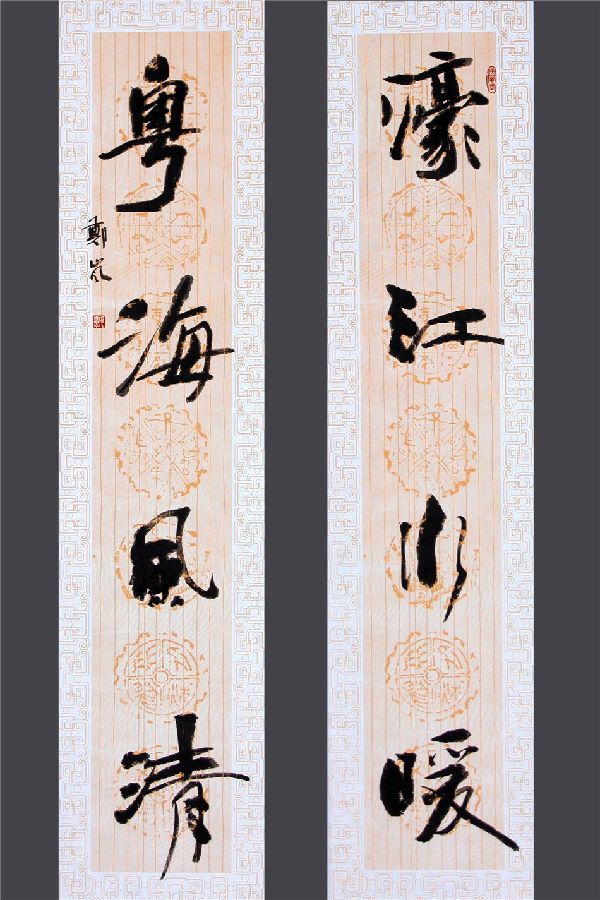 濠江水暖
粤海風清
鄭